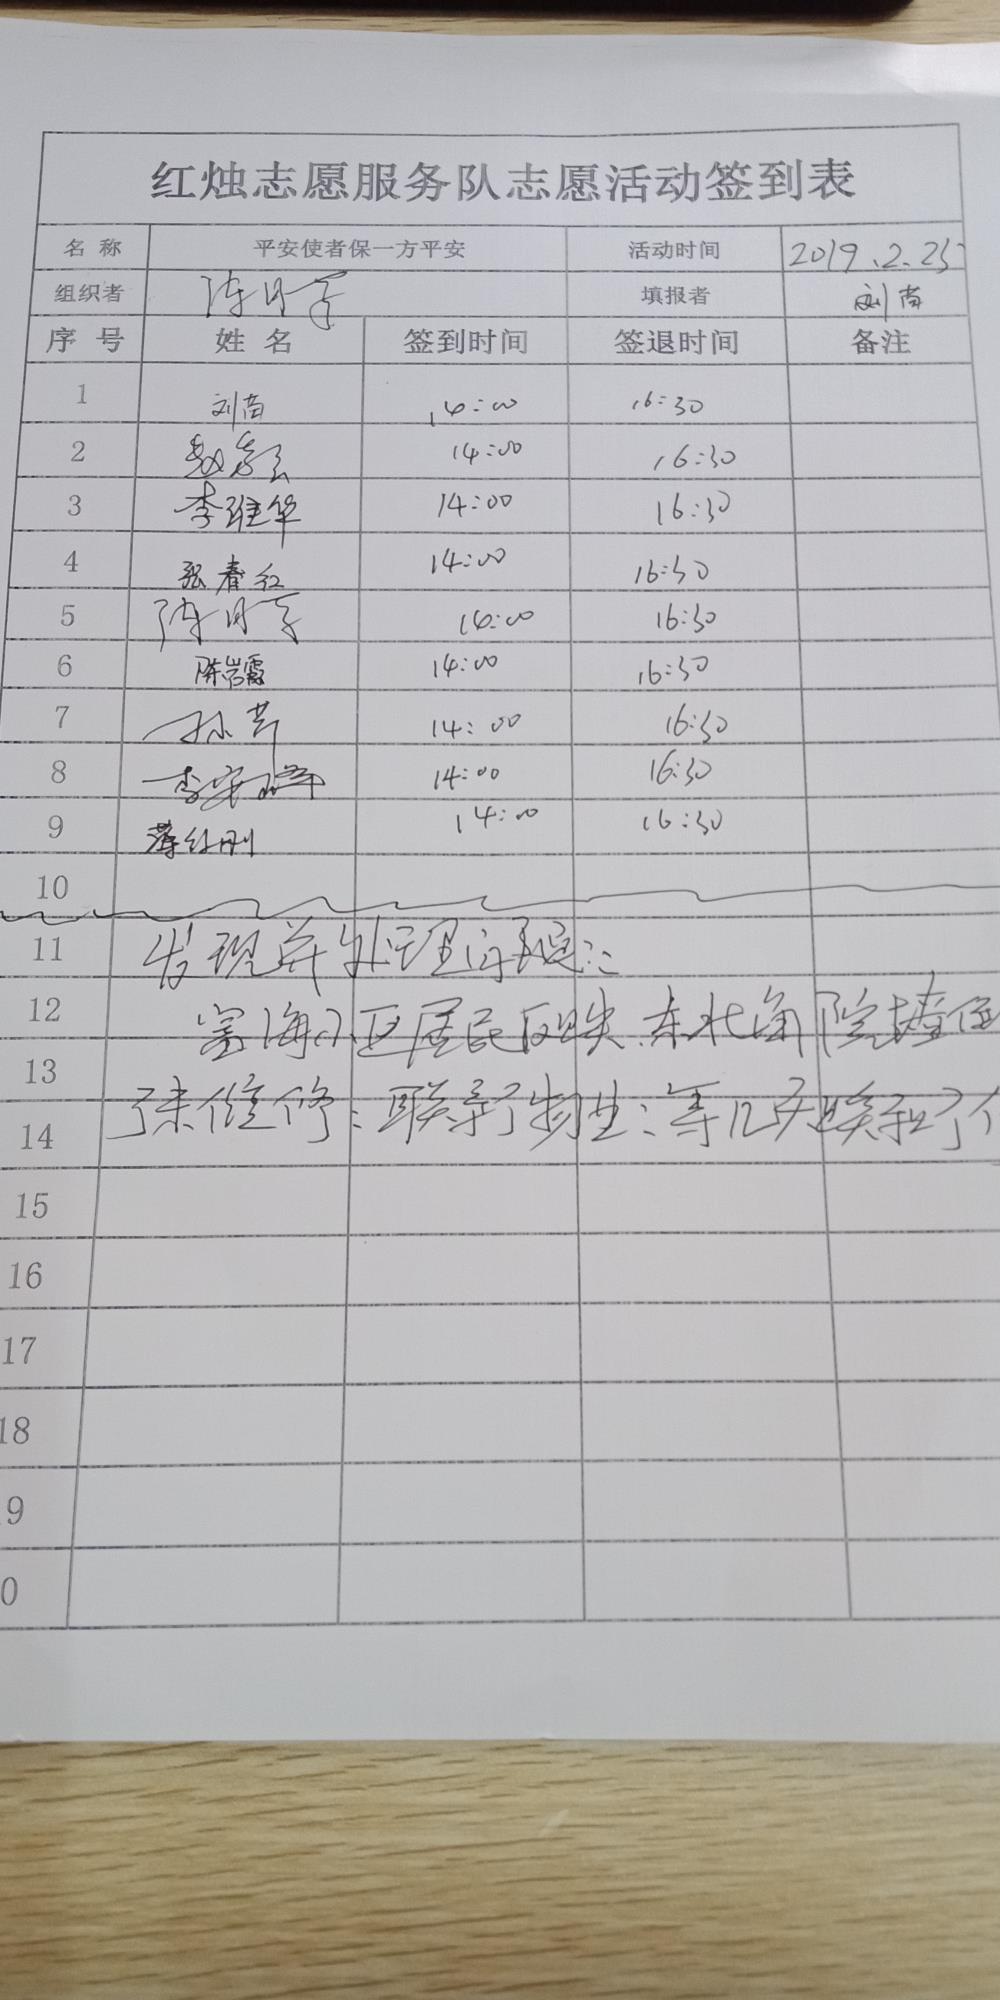 红烛志愿服务队志愿活动签到表
名 称 平安使者保一方平安 活动时间 2019.2.25
组织者 填报者 刘苗
序 号 姓 名 签到时间 签退时间 备注
1 刘苗 14:00 16:30
2 赵 14:00 16:30
3 李维华 14:00 16:30
4 张春红 14:00 16:30
5 陈 14:00 16:30
6 陈岩霞 14:00 16:30
7 孙芹 14:00 16:30
8 李安 14:00 16:30
9 薄红刚 14:00 16:30
10
11 发现并处理问题:
12 富海小区居民反映,东北角院墙
13
14 了未维修:联系了物业:等几天
15
16
17
18
9
0